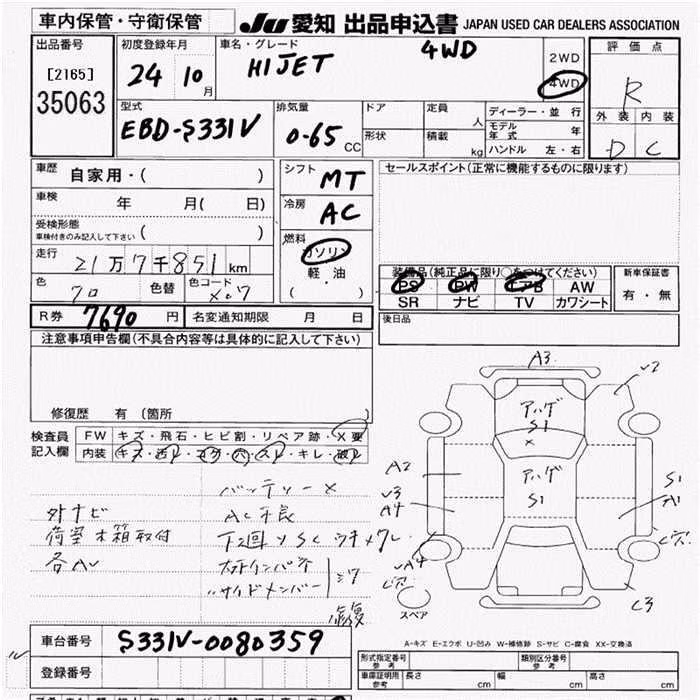 車内保管・守衛保管
JU 愛知 出品申込書 JAPAN USED CAR DEALERS ASSOCIATION
出品番号
[2165]
35063
初度登録年月
24 10月
車名・グレード
HIJET 4WD
2WD
4WD
評価点
R
外装 内装
D C
型式
EBD-S331V
排気量
0-65 CC
ドア
形状
定員 人
積載 kg
ディーラー・並行
モデル年式 年
ハンドル 左・右
車歴
自家用・( )
車検 年 月( 日)
受検形態
車検付きのみ記入して下さい ( )
走行
21万7千851km
色
クロ
色替
色コード
X07
シフト
MT
冷房
AC
燃料
ガソリン
軽・油
( )
セールスポイント(正常に機能するものに限ります)
装備品(純正品に限り○をつけてください)
PS PW エアB AW
SR ナビ TV カワシート
新車保証書
有・無
R券 7690円
名変通知期限 月 日
後日品
注意事項申告欄(不具合内容等は具体的に記入して下さい)
修復歴 有 (箇所
検査員
記入欄
FW キズ・飛石・ヒビ割・リペア跡・X要
内装 キズ・汚レ・コゲ・穴・スレ・キレ・破レ
バッテリーX
外ナビ
ACチ長
荷室木箱取付
下回りSCウチメクレ
各AV
サイドメンバー
修復
A3
V2
アハゲ
S1
X
A2
V3
A4
アハゲ
S1
S1
A1
VA4
C3
スペア
A-キズ E-エクボ U-凹み W-補修跡 S-サビ C-腐食 XX-交換済
車台番号
S331V-0080359
登録番号
形式指定番号
参考
類別区分番号
参考
車庫証明用
参考
長さ cm
幅 cm
高さ cm